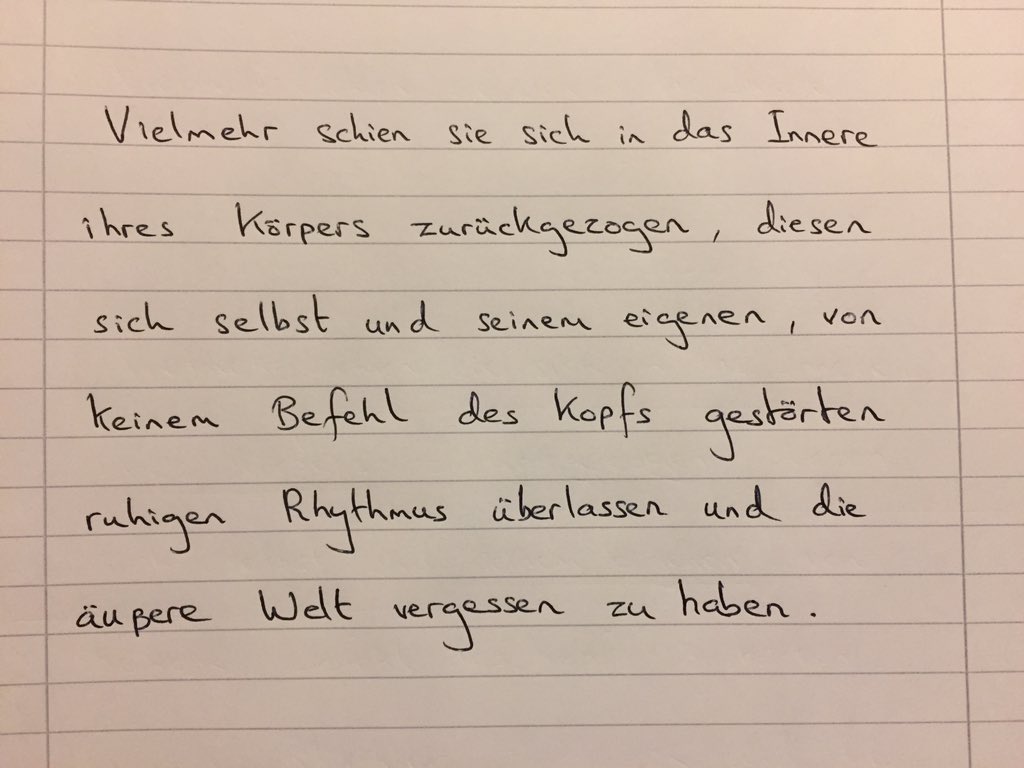 Vielmehr schien sie sich in das Innere
ihres Körpers zurückgezogen, diesen
sich selbst und seinem eigenen, von
keinem Befehl des Kopfs gestörten
ruhigen Rhythmus überlassen und die
äußere Welt vergessen zu haben.